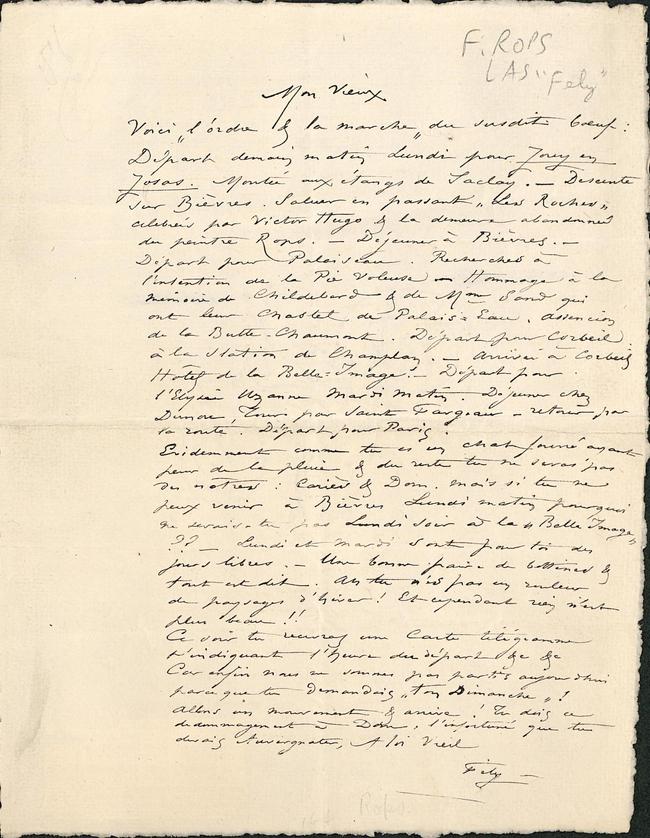 F. ROPS
LAS "Fely"
Mon Vieux
Voici "l'ordre & la marche" du susdit boeuf :
Départ demain matin Lundi pour Jouy en
Josas. Montée aux étangs de Saclay. — Descente
sur Bièvres. Saluer en passant "Les Roches"
célébrés par Victor Hugo & la demeure abandonnée
du peintre Rops. — Déjeuner à Bièvres. —
Départ pour Palaiseau. Recherches à
l'intention de la Pie Voleuse — Hommage à la
mémoire de Childebard & de Mme Sand qui
ont leur Chastel de Palais-Eau. Ascencion
de la Butte-Chaumont. Départ pour Corbeil
à la Station de Champlan. — Arrivée à Corbeil
Hotel de la Belle-Image. — Départ pour
l'Elysée Uzanne Mardi matin. Déjeuner chez
par Saint Fargeau — retour par
la route. Départ pour Paris.
Evidemment comme tu es un chat fourré ayant
peur de la pluie & du reste tu ne seras pas
des nôtres : Cariès & Dom. mais si tu ne
peux venir à Bièvres Lundi matin pourquoi
ne serais-tu pas Lundi soir à la "Belle Image"
?? — Lundi et Mardi sont pour toi des
jours libres. — Une bonne paire de bottines &
tout est dit. Ah tu n'es pas un
de paysages d'hiver ! Et cependant rien n'est
plus beau !!
Ce soir tu recevras une Carte télégramme
t'indiquant l'heure du départ &c &c
Car enfin nous ne sommes pas partis aujourd'hui
parce que tu demandais "ton Dimanche" !
Allons un mouvement & arrive ! Tu dois ce
dedommagement à Dom, l'infortuné que tu
disais Auvergnater, A toi Vieil
Fély —
Rops.